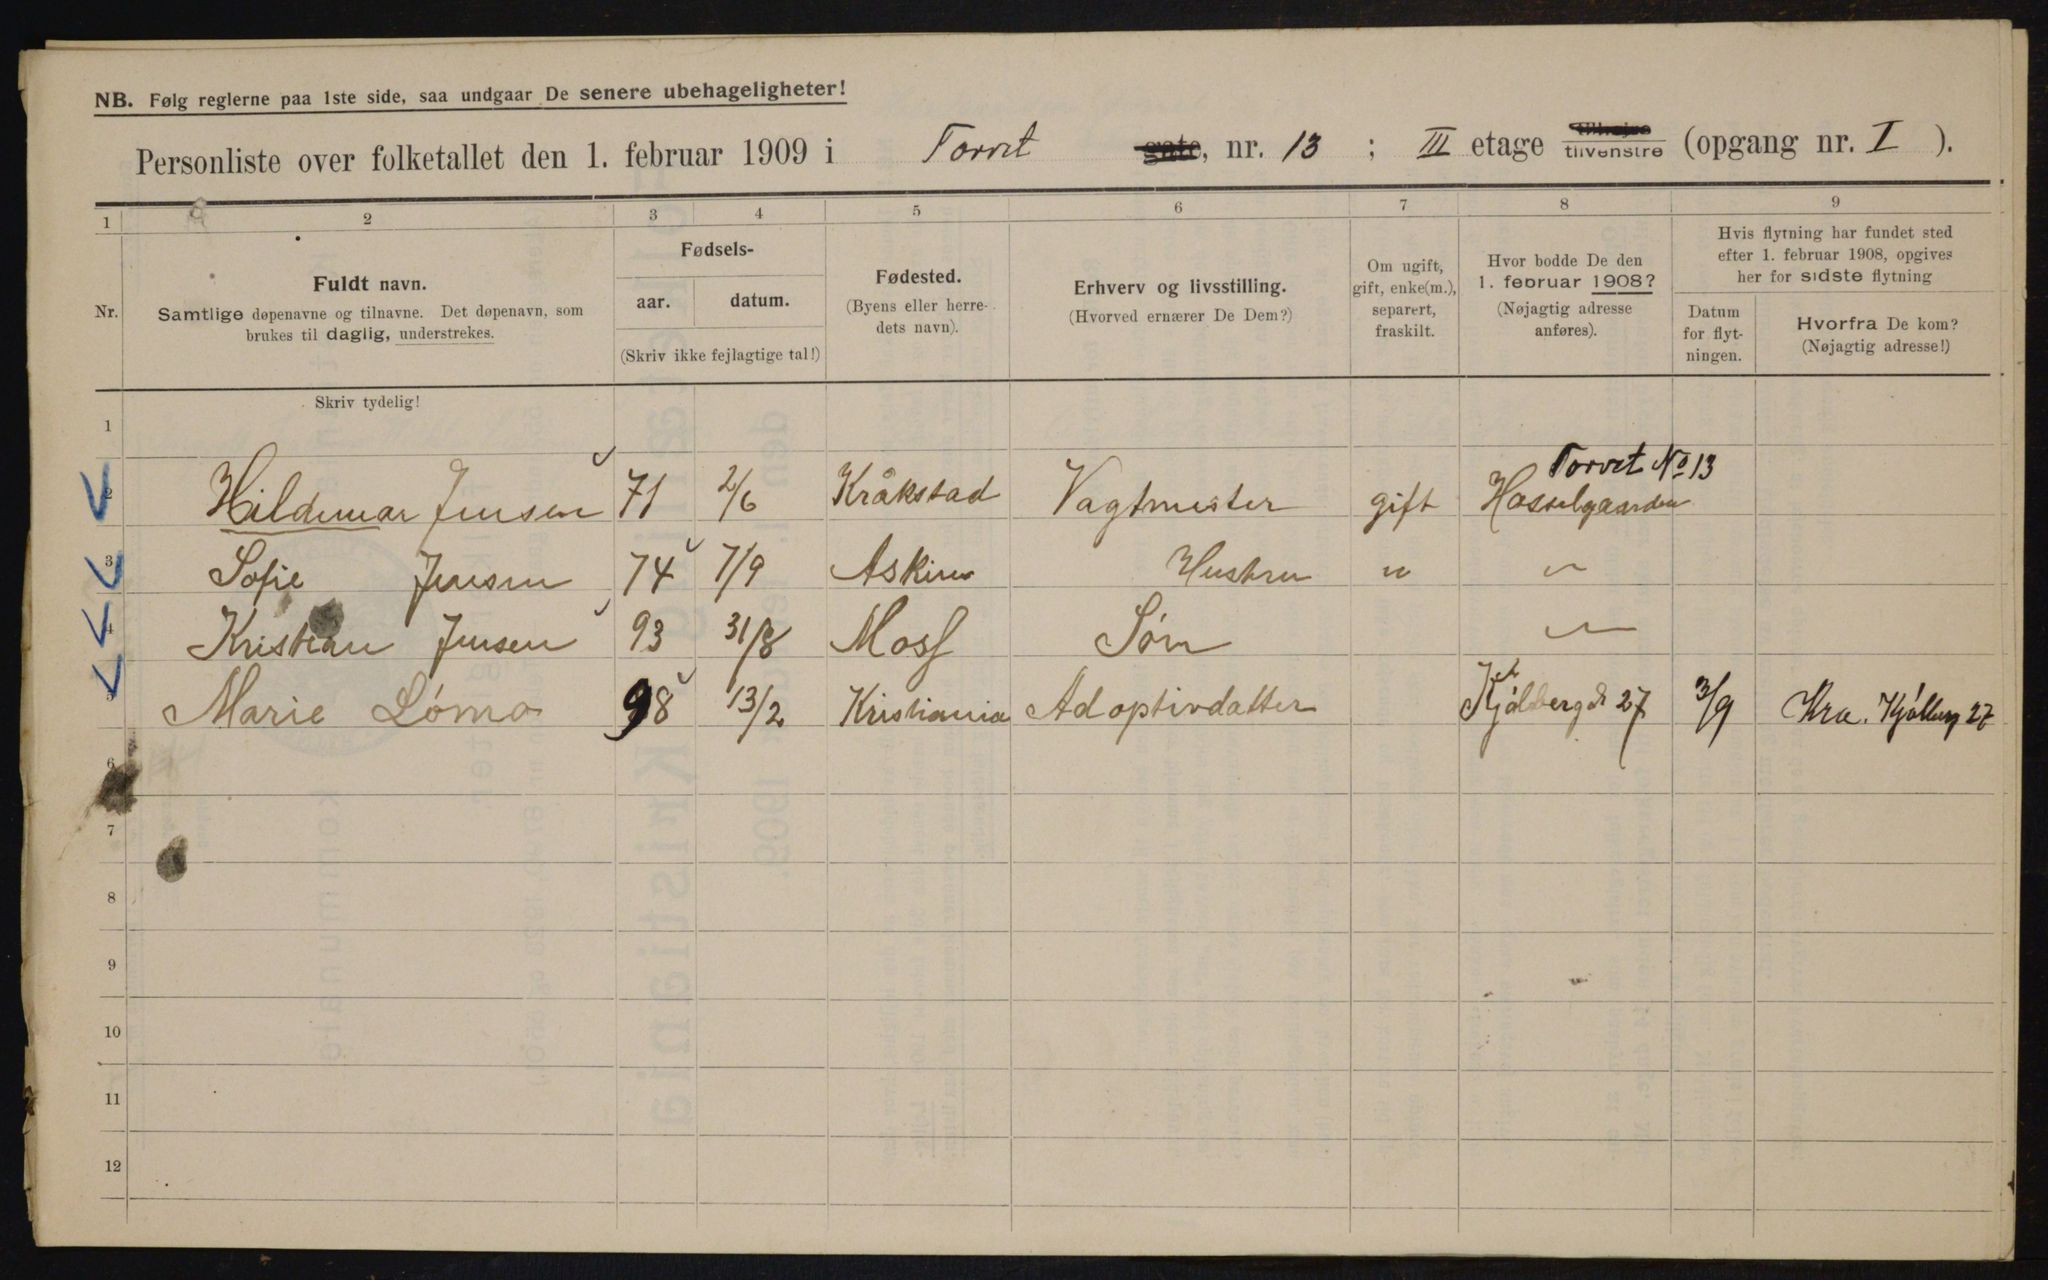 NB. Følg reglerne paa 1ste side, saa undgaar De senere ubehageligheter!
Personliste over folketallet den 1. februar 1909 i Torvet gate, nr. 13 ; III etage tilhøjre tilvenstre (opgang nr. I ).
1 2 3 4 5 6 7 8 9
Nr. Fuldt navn. Samtlige døpenavne og tilnavne. Det døpenavn, som brukes til daglig, understrekes.
Fødsels- aar. datum. (Skriv ikke fejlagtige tal!)
Fødested. (Byens eller herredets navn).
Erhverv og livsstilling. (Hvorved ernærer De Dem?)
Om ugift, gift, enke(m.), separert, fraskilt.
Hvor bodde De den 1. februar 1908? (Nøjagtig adresse anføres).
Hvis flytning har fundet sted efter 1. februar 1908, opgives her for sidste flytning
Datum for flytningen.
Hvorfra De kom? (Nøjagtig adresse!)
Skriv tydelig!
1
Torvet No 13
2 Hildemar Jensen 71 2/6 Kråkstad Vagtmester gift Hasselgaarden
3 Sofie Jensen 74 7/9 Askim Hustru " "
4 Kristian Jensen 93 31/8 Moss Søn "
5 Marie Lømo 98 13/2 Kristiania Adoptivdatter Kjølberg 27 3/9 Kra. Kjølberg 27
6
7
8
9
10
11
12